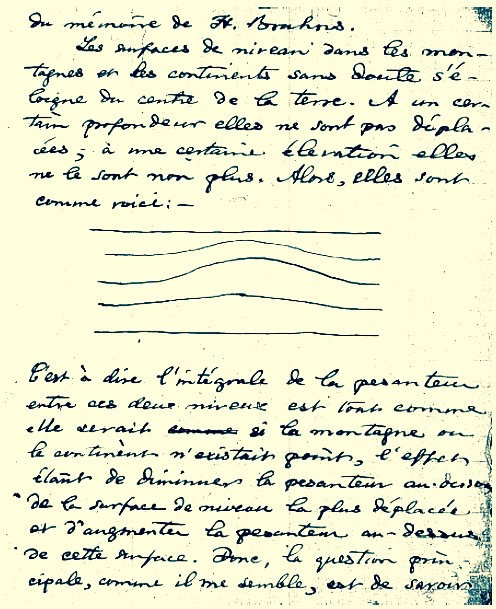 du mémoire de H. Bruhns.
Les surfaces de niveau dans les mon-
tagnes et les continents sans doute s'é-
loigne du centre de la terre. A un cer-
tain profondeur elles ne sont pas dépla-
cées; à une certaine élevation elles
ne le sont non plus. Alors, elles sont
comme voici:—
C'est à dire l'intégrale de la pesanteur
entre ces deux niveux est tout comme
elle serait comme si la montagne ou
le continent n'existait point, l'effet
étant de diminuer la pesanteur au-dessous
de la surface de niveau la plus déplacée
et d'augmenter la pesanteur au-dessus
de cette surface. Donc, la question prin-
cipale, comme il me semble, est de savoir